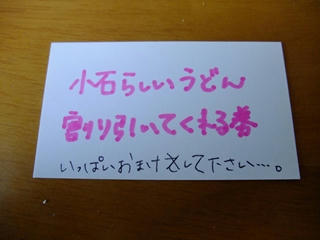 小石らしいうどん
割り引いてくれる券
いっぱいおまけをして下さい…。